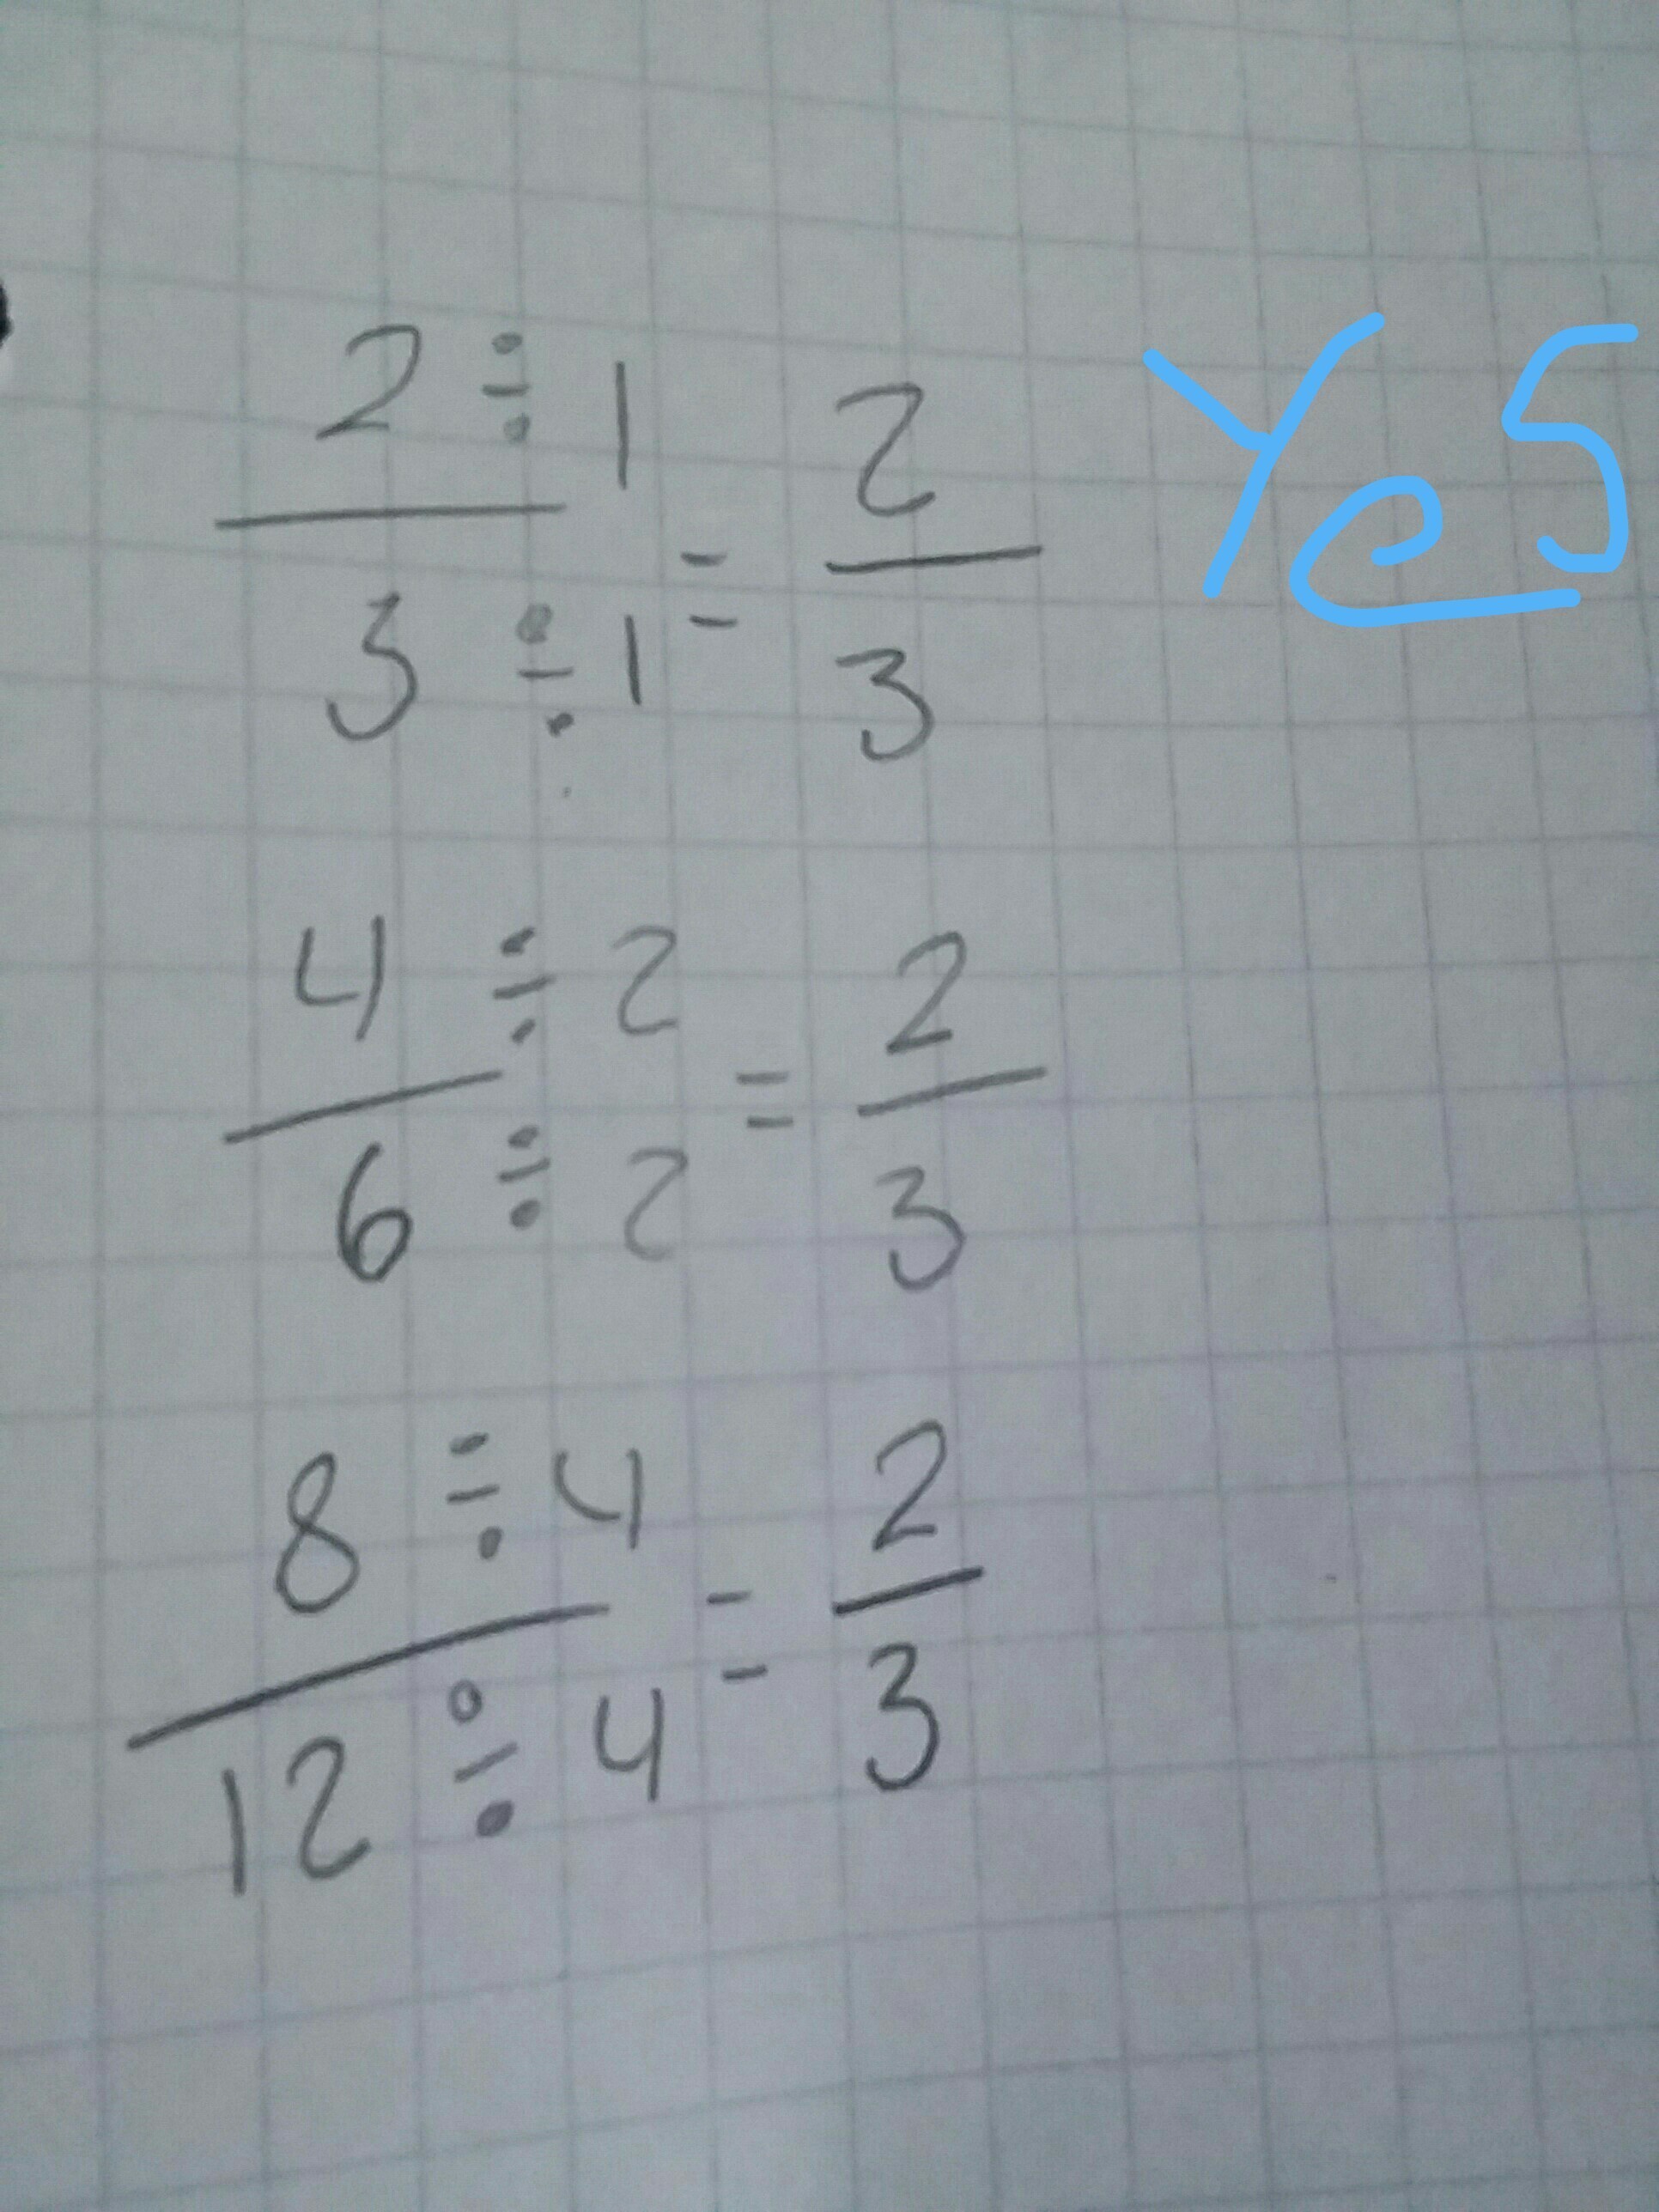 2 ÷ 1
3 ÷ 1
=
2
3
Yes
4 ÷ 2
6 ÷ 2
=
2
3
8 ÷ 4
12 ÷ 4
=
2
3